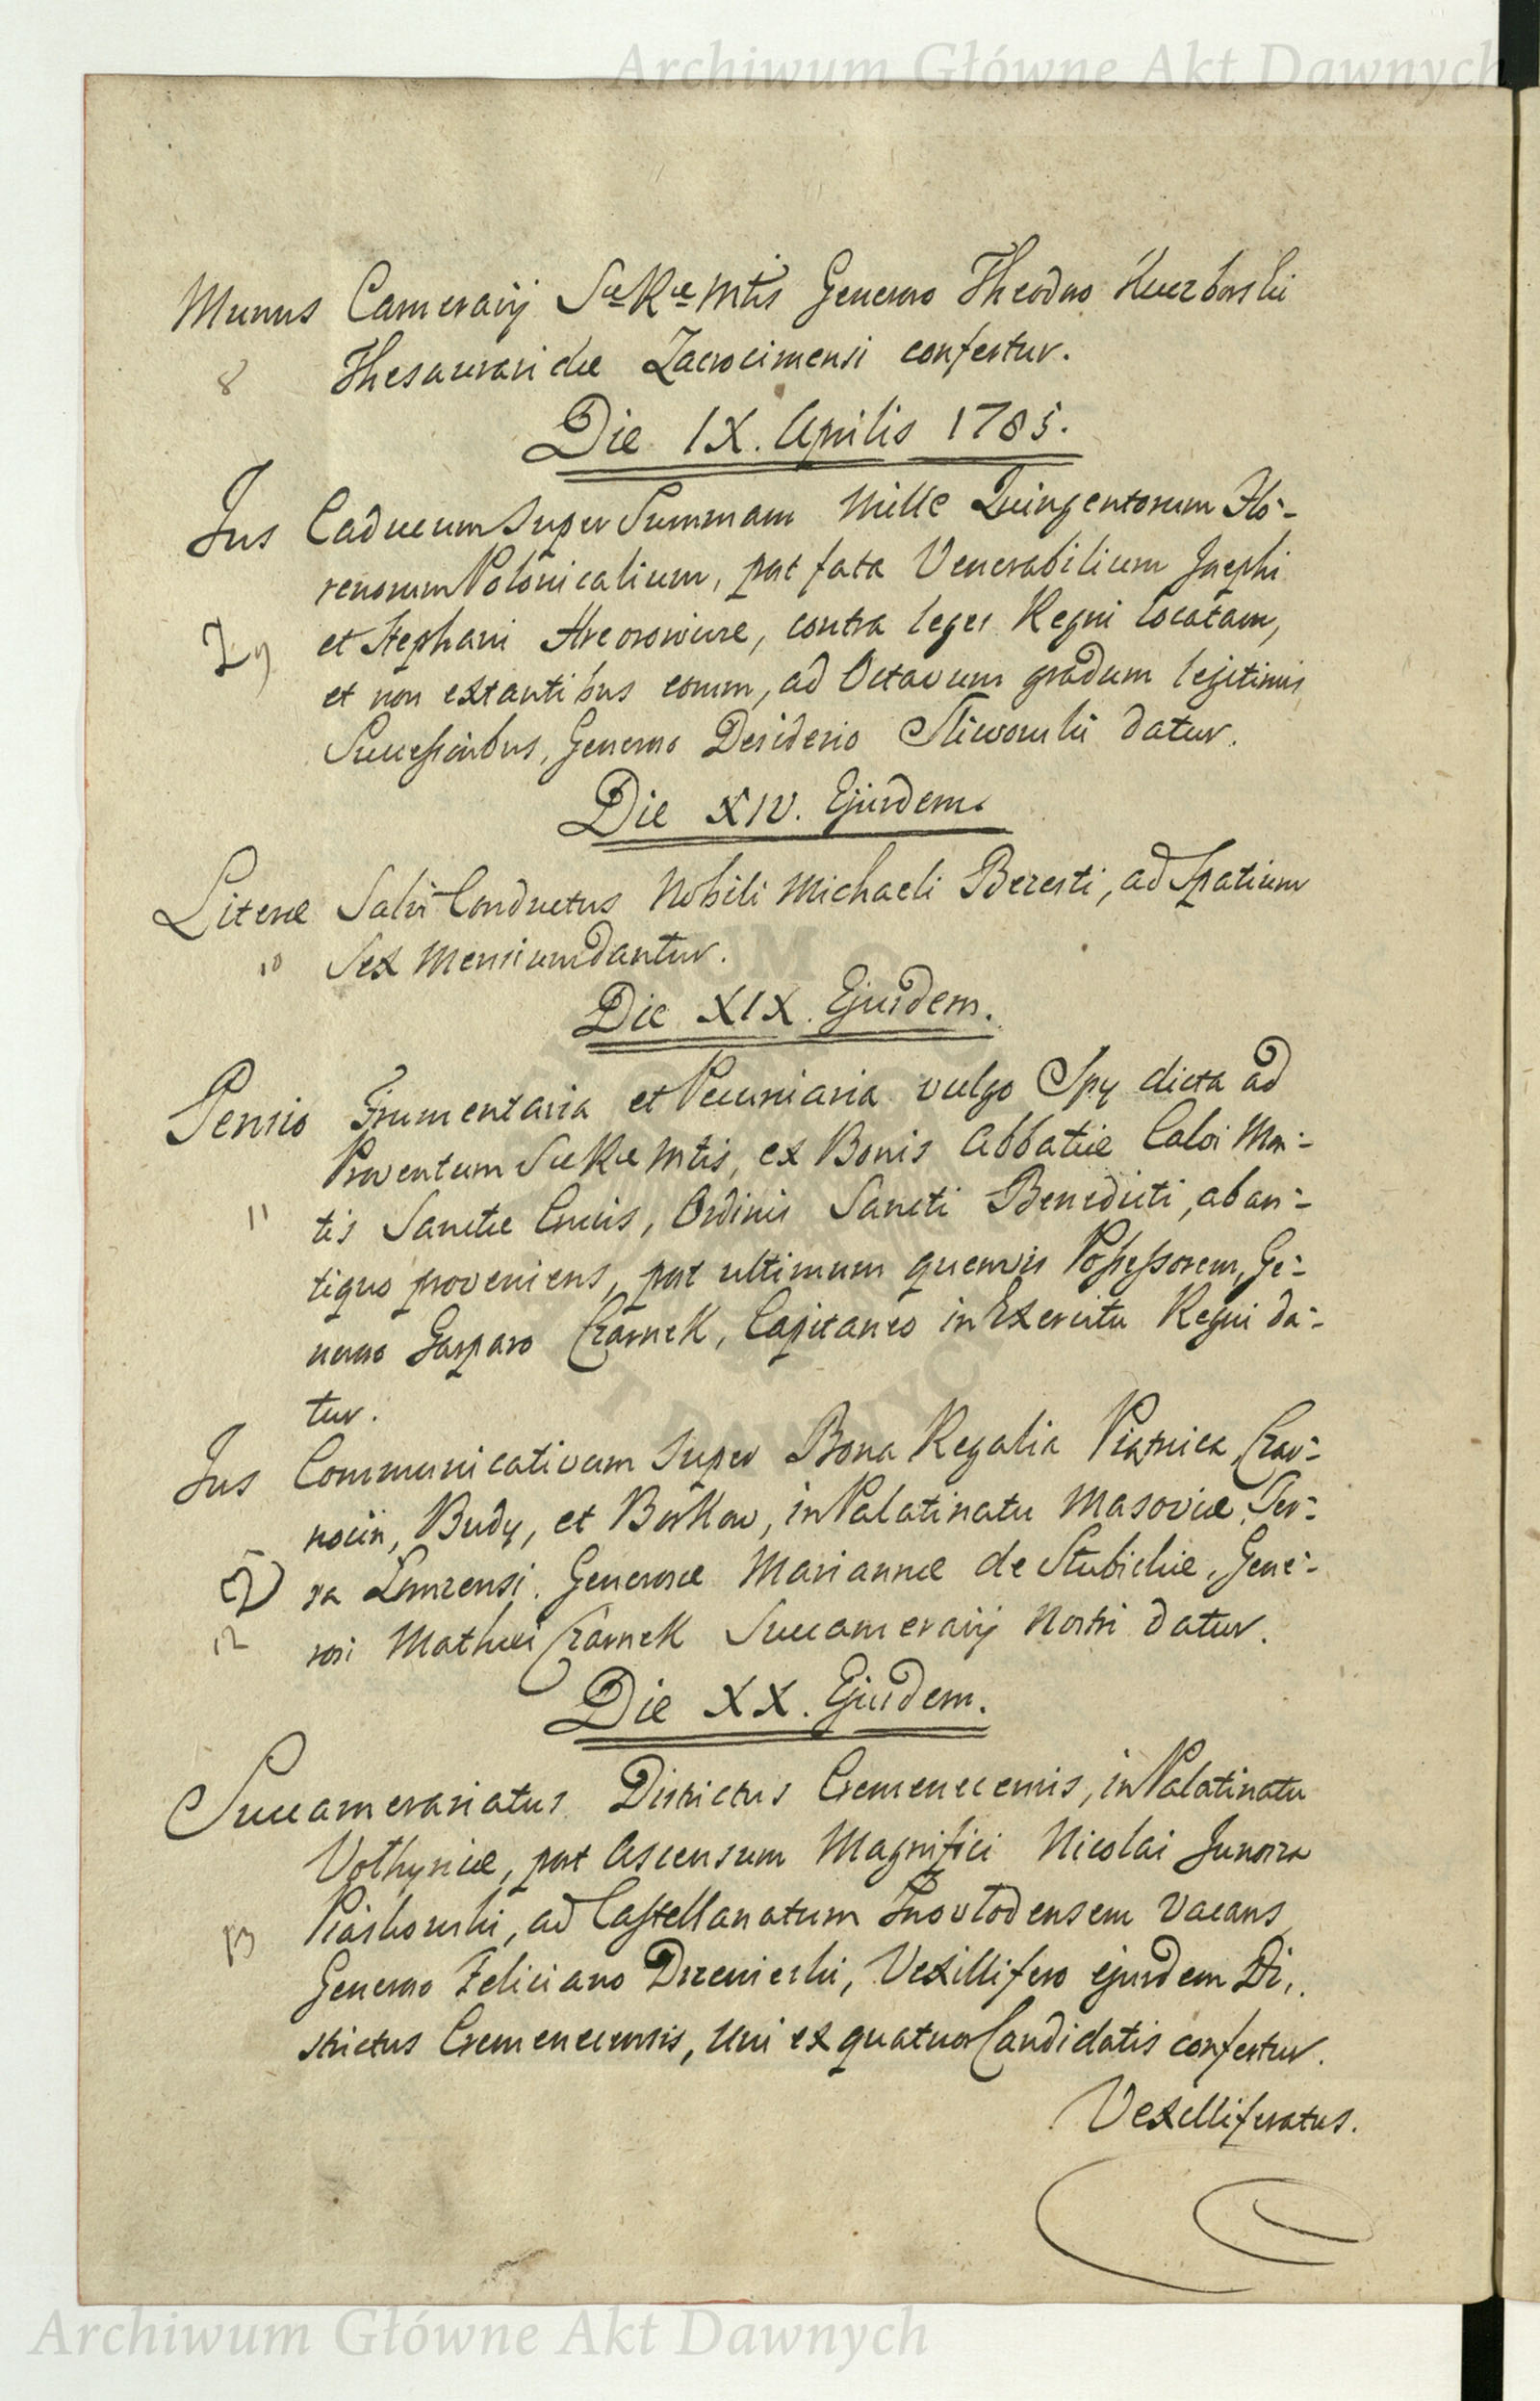 Archiwum Główne Akt Dawnych
Munus Camerarij Sæ Ræ Mtis Generoso Theodoro
8 Thesauraridæ Zacrocimensi confertur.
Die IX. Aprilis 1785.
Jus Caducum super Summam Mille Quingentorum Flo-
renorum Polonicalium, post fata Venerabilium Josephi
et Stephani contra leges Regni locatam,
9 et non extantibus eorum, ad Octavum gradum legitimis
Successoribus, Generoso Desiderio datur.
Die XIV. Ejusdem.
Literæ Salvi Conductus Nobili Michaeli Beresti, ad Spatium
10 Sex Mensium dantur.
Die XIX. Ejusdem.
Pensio Frumentaria et Pecuniaria vulgo Spy dicta ad
Proventum Sæ Ræ Mtis, ex Bonis Abbatiæ Calvi Mon-
11 tis Sanctæ Crucis, Ordinis Sancti Benedicti, ab an-
tiquo proveniens, post ultimum quemvis Possessorem, Ge-
neroso Gasparo Czarnek, Capitaneo in Exercitu Regni da-
tur.
Jus Communicativum super Bona Regalia Piątnica, Czar-
nocin, Budy, et Borkow, in Palatinatu Masoviæ, Ter-
ra Lomzensi. Generosæ Mariannæ de Stubickie, Gene-
12 rosi Mathæi Czarnek Succamerarij Nostri datur.
Die XX. Ejusdem.
Succamerariatus Districtus Cremenecensis, in Palatinatu
Volhyniæ, post Ascensum Magnifici Nicolai Junosza
13 Piaskowski, ad Castellanatum Inovlodensem vacans,
Generoso Feliciano Drzewiecki, Vexillifero ejusdem Di-
strictus Cremenecensis, uni ex quatuor Candidatis confertur.
Vexilliferatus.
Archiwum Główne Akt Dawnych